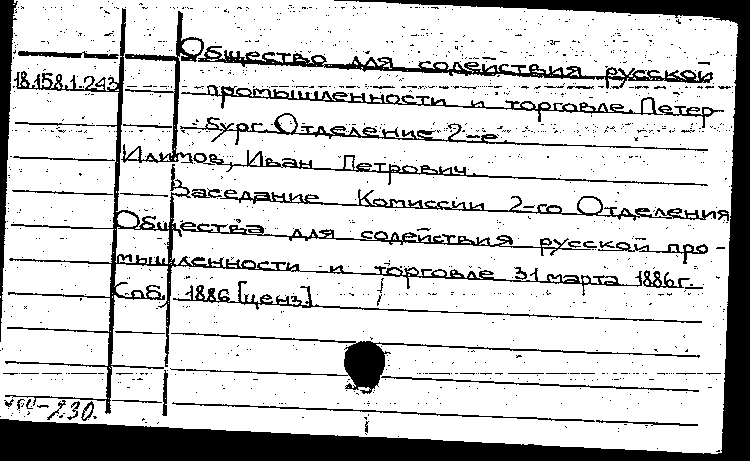 Общество для содействия русской
18.158.1.243 промышленности и торговле. Петер-
бург. Отделение 2-е.
Илимов, Иван Петрович.
Заседание Комиссии 2-го Отделения
Общества для содействия русской про-
мышленности и торговле 31 марта 1886г.
Спб, 1886 [ценз].
-230.